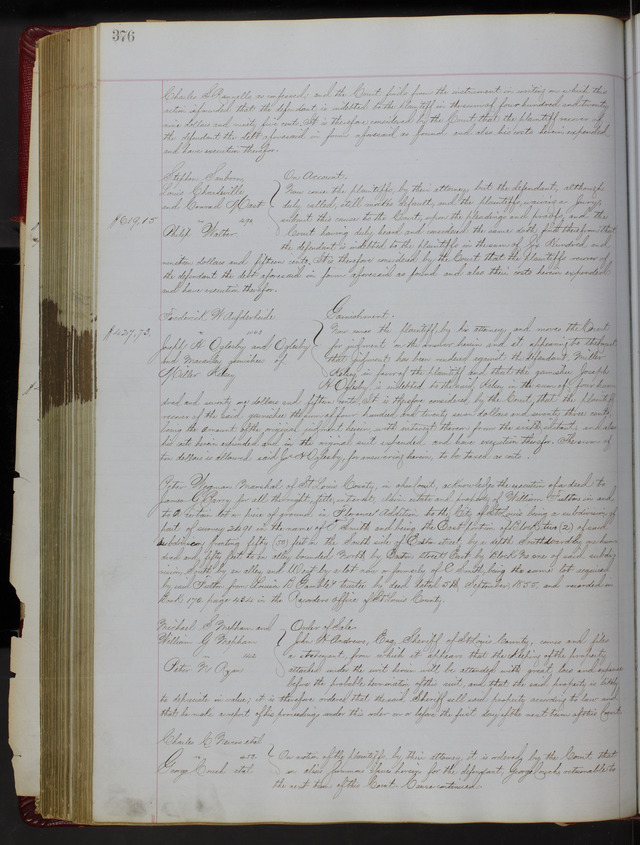 376
and the Court finds from the instrument in writing on which this
action is founded that the defendant is indebted to the plaintiff in the sum of four hundred and twenty
dollars and ninety five cents. It is therefore considered by the Court that the plaintiff recover of
the defendant the debt aforesaid in form aforesaid as found and also his costs herein expended
and have execution therefor.
Stephen On Account.
Louis Now come the plaintiffs, by their attorney, but the defendant, although
and Conrad duly called, still makes default, and the plaintiffs waiving a jury,
$619,15 vs submit this cause to the Court, upon the pleadings and proofs, and the
Philip Court having duly heard and considered the same doth find therefrom that
the defendant is indebted to the plaintiffs in the sum of Six Hundred and
nineteen dollars and fifteen cents. It is therefore considered by the Court that the plaintiffs recover of
the defendant the debt aforesaid in form aforesaid as found and also their costs herein expended
and have execution therefor.
Frederick W Garnishment.
$427,73. vs Now comes the plaintiff, by his attorney, and moves the Court
Joseph H Oglesby and Oglesby for judgment on the answer herein and it appearing to the Court
and Macauley garnishees of that judgment has been rendered against the defendant, Miller
Miller Kelsey Kelsey in favor of the plaintiff and that the garnishee Joseph
H Oglesby is indebted to the said Kelsey in the sum of four hundred
and seventy dollars and fifteen cents. It is therefore considered by the Court, that the plaintiff
recover of the said garnishee the sum of four hundred and twenty seven dollars and seventy three cents,
being the amount of the original judgment herein, with interest thereon from the instant, and also
his costs herein expended and in the original suit expended, and have execution therefor. The sum of
ten dollars is allowed said Jos H Oglesby, for answering herein, to be taxed as costs.
Peter Marshal of St Louis County, in open Court, acknowledges the execution of a deed to
James for all the right, title, interest, claim estate and property of William in and
to a certain lot or piece of ground in Addition to the City of St Louis being a subdivision of
part of survey 2491 in the name of Smith and being the East portion of Block two (2) of said
subdivision fronting fifty (50) feet on the South side of Easton street by a depth Southwardly
hundred and fifty feet to an alley bounded North by Easton street East by Block No one of said subdivision
South by an alley and West by a lot now or formerly of C Smith being the same lot acquired
by said from trustee by deed dated 5th September 1855 and recorded in
Book 172 page 454 in the Recorders Office of St Louis County.
Michael S and Order of Sale.
William G John H Andrews, Esq, Sheriff of St Louis County, comes and files
vs a statement, from which it appears that the keeping of the property
Peter W Ryan attached under the writ herein will be attended with great loss and expense
before the probable termination of this suit, and that the said property is likely
to depreciate in value; it is therefore ordered that the said Sheriff sell said property according to law and
that he make a report of his proceedings under this order on or before the first day of the next term of this Court.
Charles et al
vs On motion of the plaintiffs, by their attorney, it is ordered by the Court that
George et al an alias summons issue herein for the defendant, George returnable to
the next term of this Court. Cause continued.